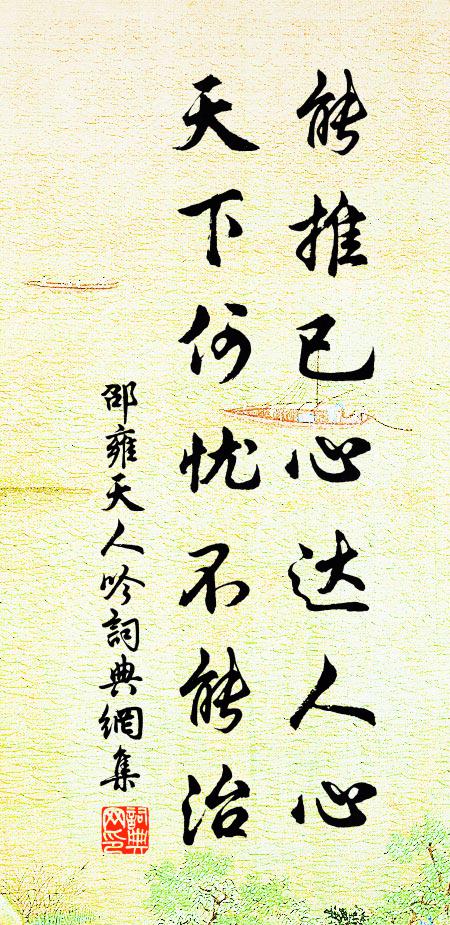 能推已心达人心
天下何忧不能治
邵雍天人吟詞典網集
詞典网印